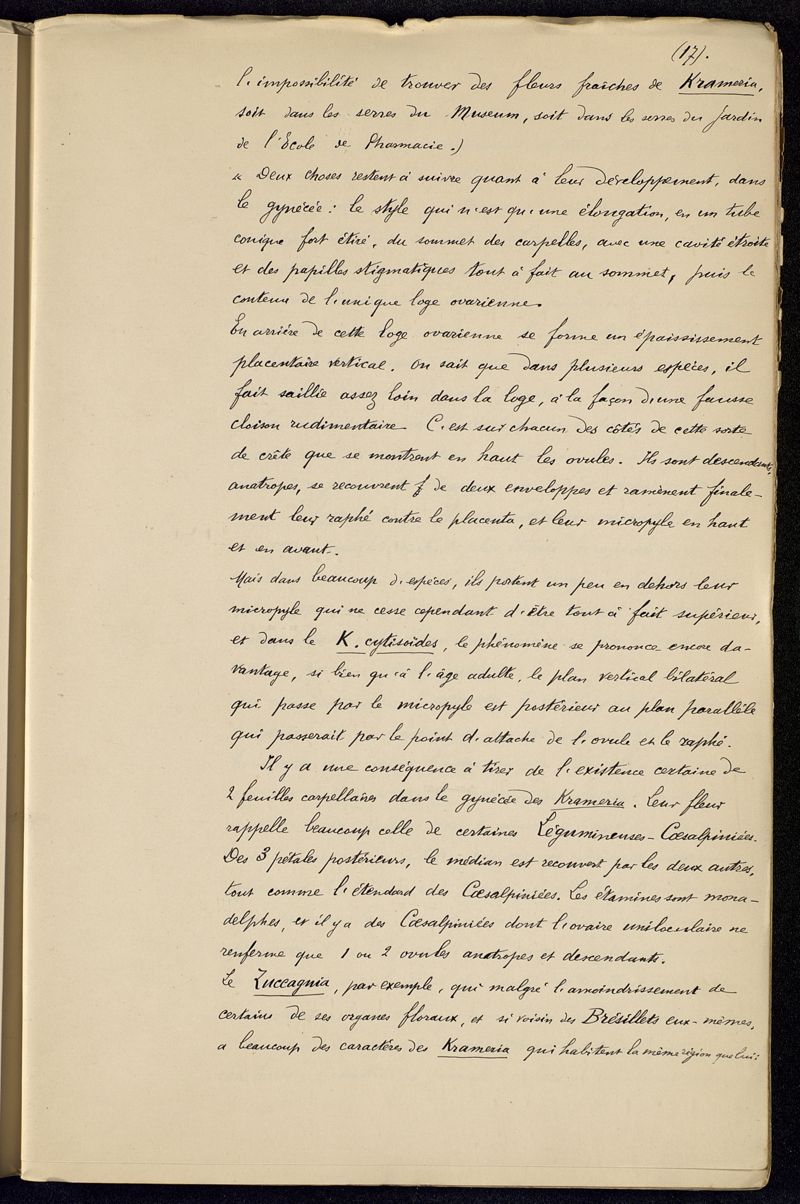 (17).
l'impossibilité de trouver des fleurs fraîches de Krameria,
soit dans les serres du Museum, soit dans les serres du Jardin
de l'Ecole de Pharmacie.)
« Deux choses restent à suivre quant à leur développement, dans
le gynécée: le style qui n'est qu'une élongation, en un tube
conique fort étiré, du sommet des carpelles, avec une cavité étroite
et des papilles stigmatiques tout à fait au sommet, puis le
contenu de l'unique loge ovarienne.
En arrière de cette loge ovarienne se forme un épaississement
placentaire vertical. On sait que dans plusieurs espèces, il
fait saillie assez loin dans la loge, à la façon d'une fausse
cloison rudimentaire. C'est sur chacun des côtés de cette sorte
de crête que se montrent en haut les ovules. Ils sont descendants,
anatropes, se recouvrent de deux enveloppes et ramènent finale-
ment leur raphé contre le placenta, et leur micropyle en haut
et en avant.
Mais dans beaucoup d'espèces, ils portent un peu en dehors leur
micropyle qui ne cesse cependant d'être tout à fait supérieur,
et dans le K. cytisoides, le phénomène se prononce encore da-
vantage, si bien qu'à l'âge adulte, le plan vertical bilatéral
qui passe par le micropyle est postérieur au plan parallèle
qui passerait par le point d'attache de l'ovule et le raphé.
Il y a une conséquence à tirer de l'existence certaine de
2 feuilles carpellaires dans le gynécée des Krameria. Leur fleur
rappelle beaucoup celle de certaines Légumineuses-Cæsalpiniées.
Des 3 pétales postérieurs, le médian est recouvert par les deux autres,
tout comme l'étendard des Cæsalpiniées. Les étamines sont mona-
delphes, et il y a des Cæsalpiniées dont l'ovaire uniloculaire ne
renferme que 1 ou 2 ovules anatropes et descendants.
Le Zuccagnia, par exemple, qui malgré l'amoindrissement de
certains de ses organes floraux, et si voisin des Brésillets eux-mêmes,
a beaucoup des caractères des Krameria qui habitent la même région que lui: